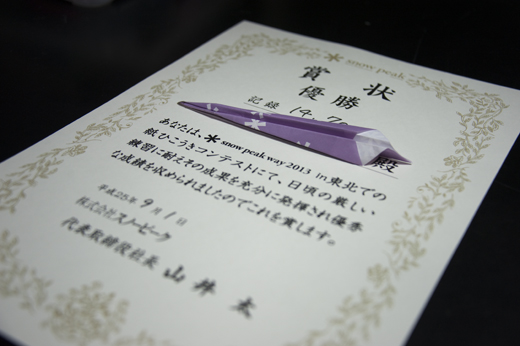 snow peak
賞状
優勝
記録 14.7
殿
あなたは snow peak way 2013 in 東北での
紙ひこうきコンテストにて、日頃の厳しい
練習に耐えその成果を充分に発揮され優秀
な成績を収められましたのでこれを賞します。
平成25年 9月1日
株式会社スノーピーク
代表取締役社長 山井 太